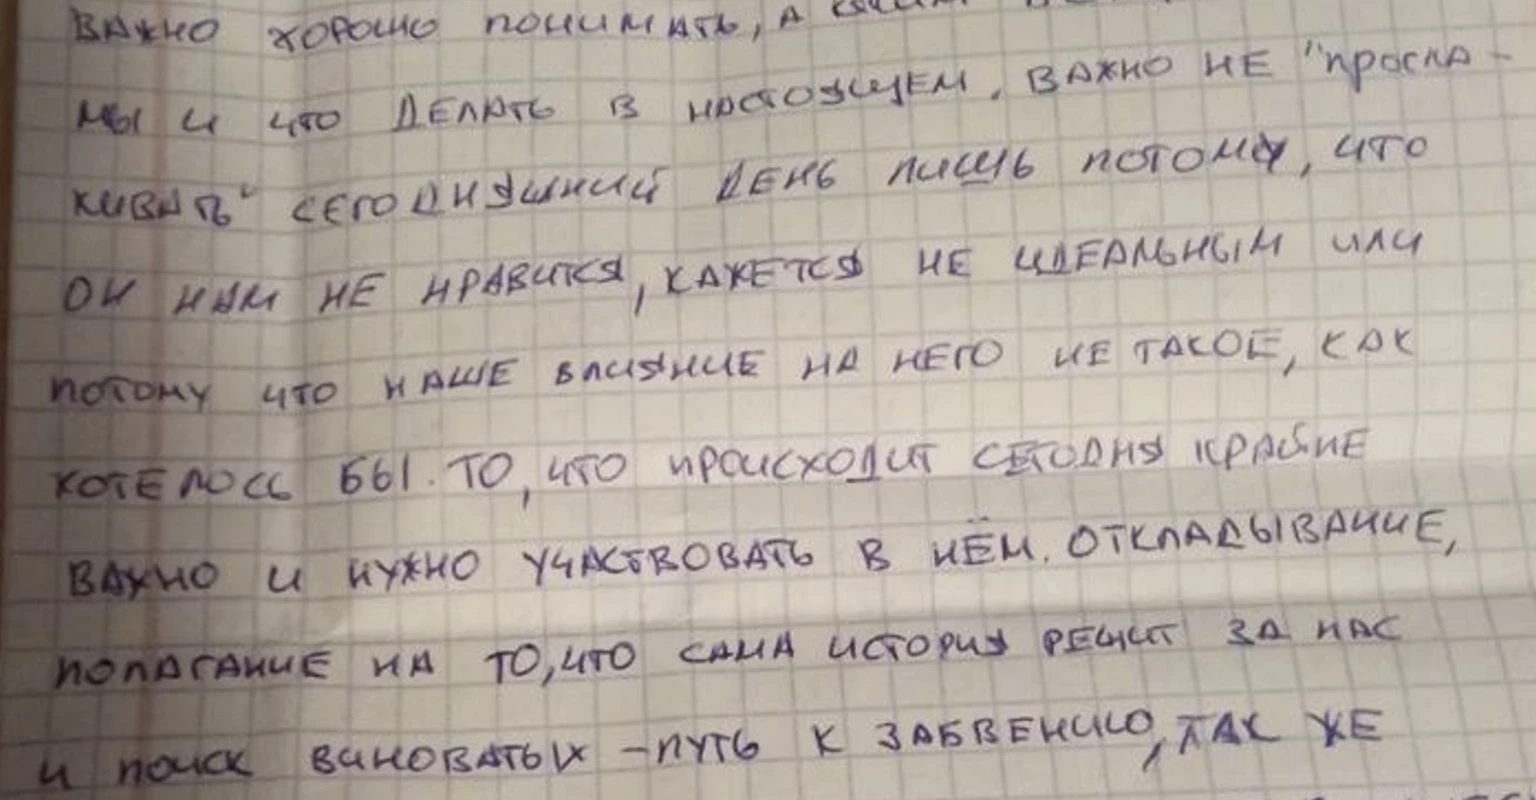 ВАЖНО ХОРОШО ПОНИМАТЬ, А
МЫ И ЧТО ДЕЛАТЬ В НАСТОЯЩЕМ. ВАЖНО НЕ "ПРОСКА-
КИВАТЬ" СЕГОДНЯШНИЙ ДЕНЬ ЛИШЬ ПОТОМУ, ЧТО
ОН НАМ НЕ НРАВИТСЯ, КАЖЕТСЯ НЕ ИДЕАЛЬНЫМ ИЛИ
ПОТОМУ ЧТО НАШЕ ВЛИЯНИЕ НА НЕГО НЕ ТАКОЕ, КАК
ХОТЕЛОСЬ БЫ. ТО, ЧТО ПРОИСХОДИТ СЕГОДНЯ КРАЙНЕ
ВАЖНО И НУЖНО УЧАСТВОВАТЬ В НЁМ. ОТКЛАДЫВАНИЕ,
ПОЛАГАНИЕ НА ТО, ЧТО САМА ИСТОРИЯ РЕШИТ ЗА НАС
И ПОИСК ВИНОВАТЫХ - ПУТЬ К ЗАБВЕНИЮ, ТАК ЖЕ